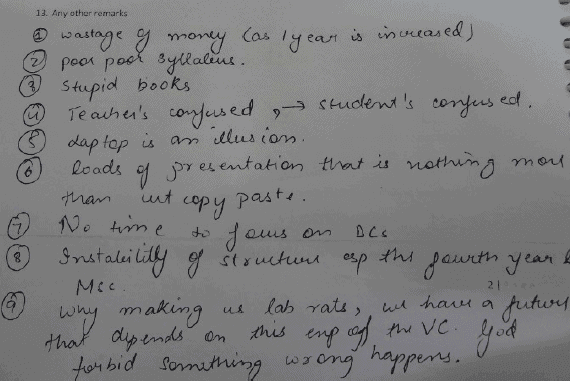 13. Any other remarks
① wastage of money (as 1 year is increased)
② poor poor syllabus.
③ Stupid books
④ Teacher's confused, → student's confused.
⑤ Laptop is an illusion.
⑥ loads of presentation that is nothing more
than cut copy paste.
⑦ No time to focus on DCs
⑧ Instability of structure esp the fourth year &
Msc.
⑨ why making us lab rats, we have a future
that depends on this exp of the VC. God
forbid something wrong happens.